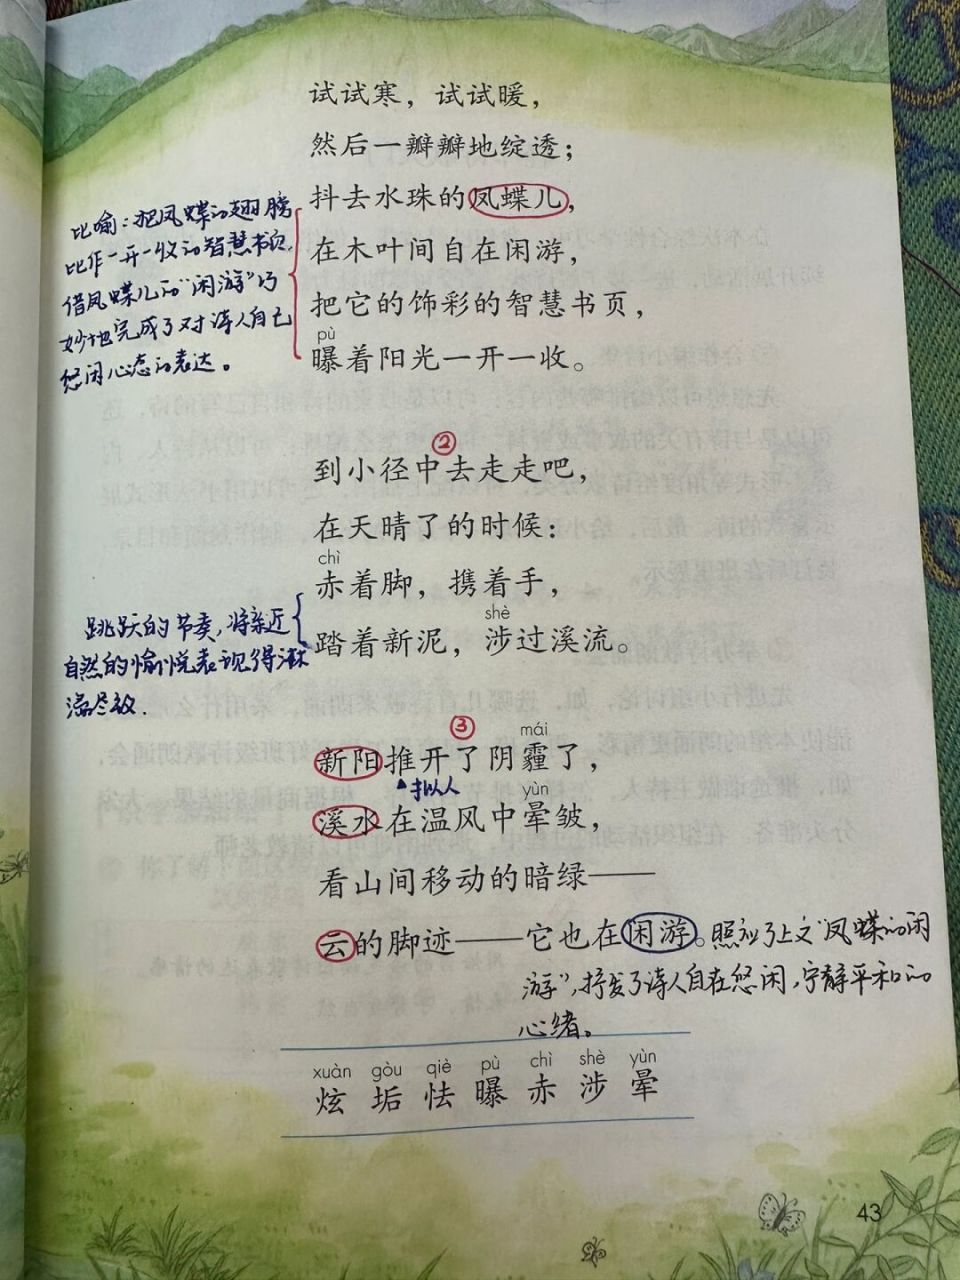 试试寒，试试暖，
然后一瓣瓣地绽透；
抖去水珠的凤蝶儿，
在木叶间自在闲游，
把它的饰彩的智慧书页，
pù
曝着阳光一开一收。
比喻：把凤蝶的翅膀
比作一开一收的智慧书页，
借凤蝶儿的“闲游”巧
妙地完成了对诗人自己
悠闲心态的表达。
②
到小径中去走走吧，
在天晴了的时候：
chì
赤着脚，携着手，
shè
踏着新泥，涉过溪流。
跳跃的节奏，将亲近
自然的愉悦表现得淋
漓尽致.
③
mái
新阳推开了阴霾了，
拟人
yùn
溪水在温风中晕皱，
看山间移动的暗绿——
云的脚迹——它也在闲游。
照应了上文“凤蝶的闲
游”，抒发了诗人自在悠闲，宁静平和的
心绪。
xuàn gòu qiè pù chì shè yùn
炫 垢 怯 曝 赤 涉 晕
43